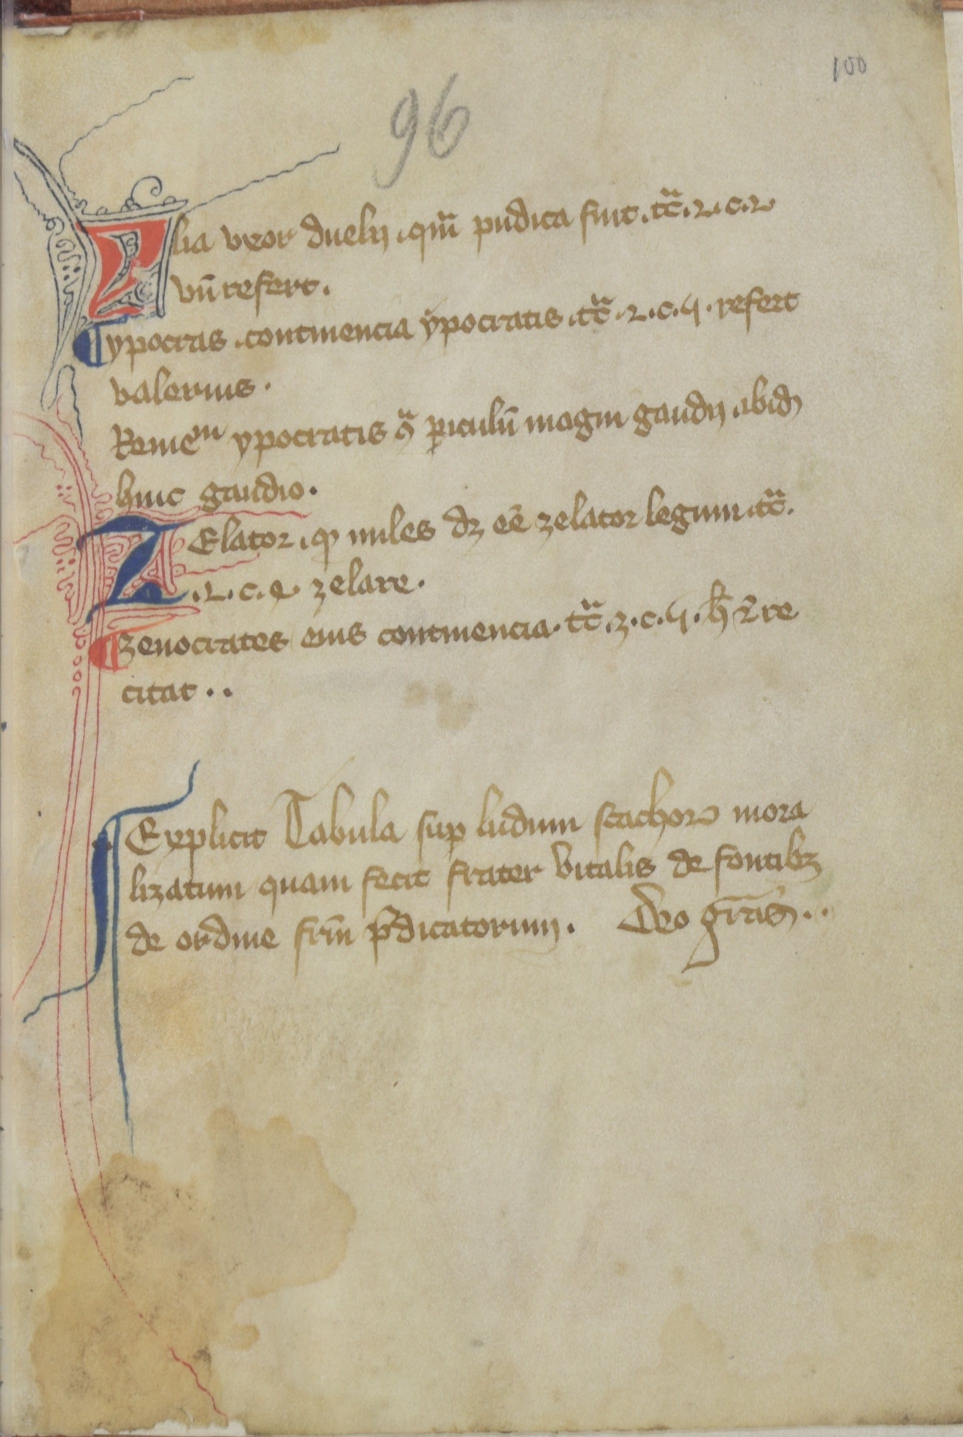 100
96
Ylia vxor duelij .qm̄ pudica fuit .tc̄.2.c.2
vn̄ refert.
ypocras .continencia ypocratis .tc̄.2.c.4. refert
valerius.
ypocratis piculū magni gaudij
huic gaudio.
ZElator. miles dz eē zelator legum .tc̄.
.2.c. zelare.
zenocrates eius continencia. tc̄.3.c.4. re
citat..
Explicit Tabula sup ludum scachorꝝ mora
lizatum quam fecit frater vitalis de fontibꝫ
de ordine frm̄ p̄dicatorum. Deo grās..